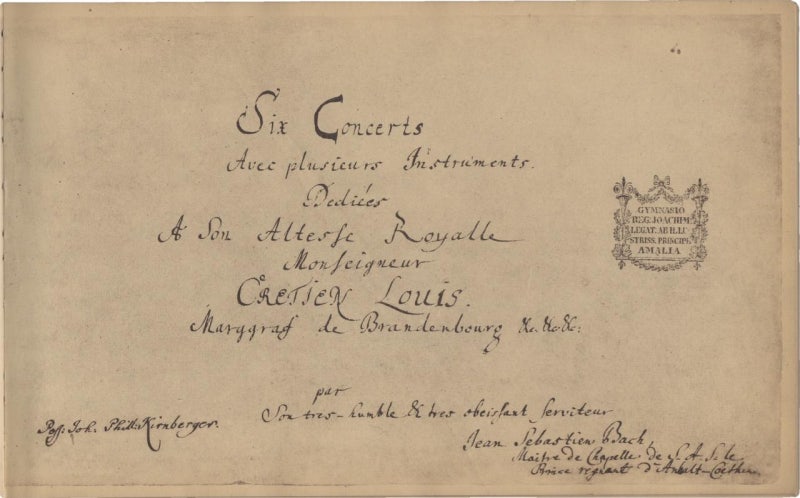 Six Concerts
Avec plusieurs Instruments.
Dediées
A Son Altesse Royalle
Monseigneur
CRETIEN LOUIS.
Marggraf de Brandenbourg &c. &c. &c:
par
Son tres-humble & tres obeissant serviteur
Jean Sebastien Bach,
Maitre de Chapelle de S. A. S. le
Prince regnant d'Anhalt-Coethen.
Poss: Joh. Phill: Kirnberger.
GYMNASIO
REG. JOACHIMI
LEGAT. AB ILLU
STRISS. PRINCIPE
AMALIA